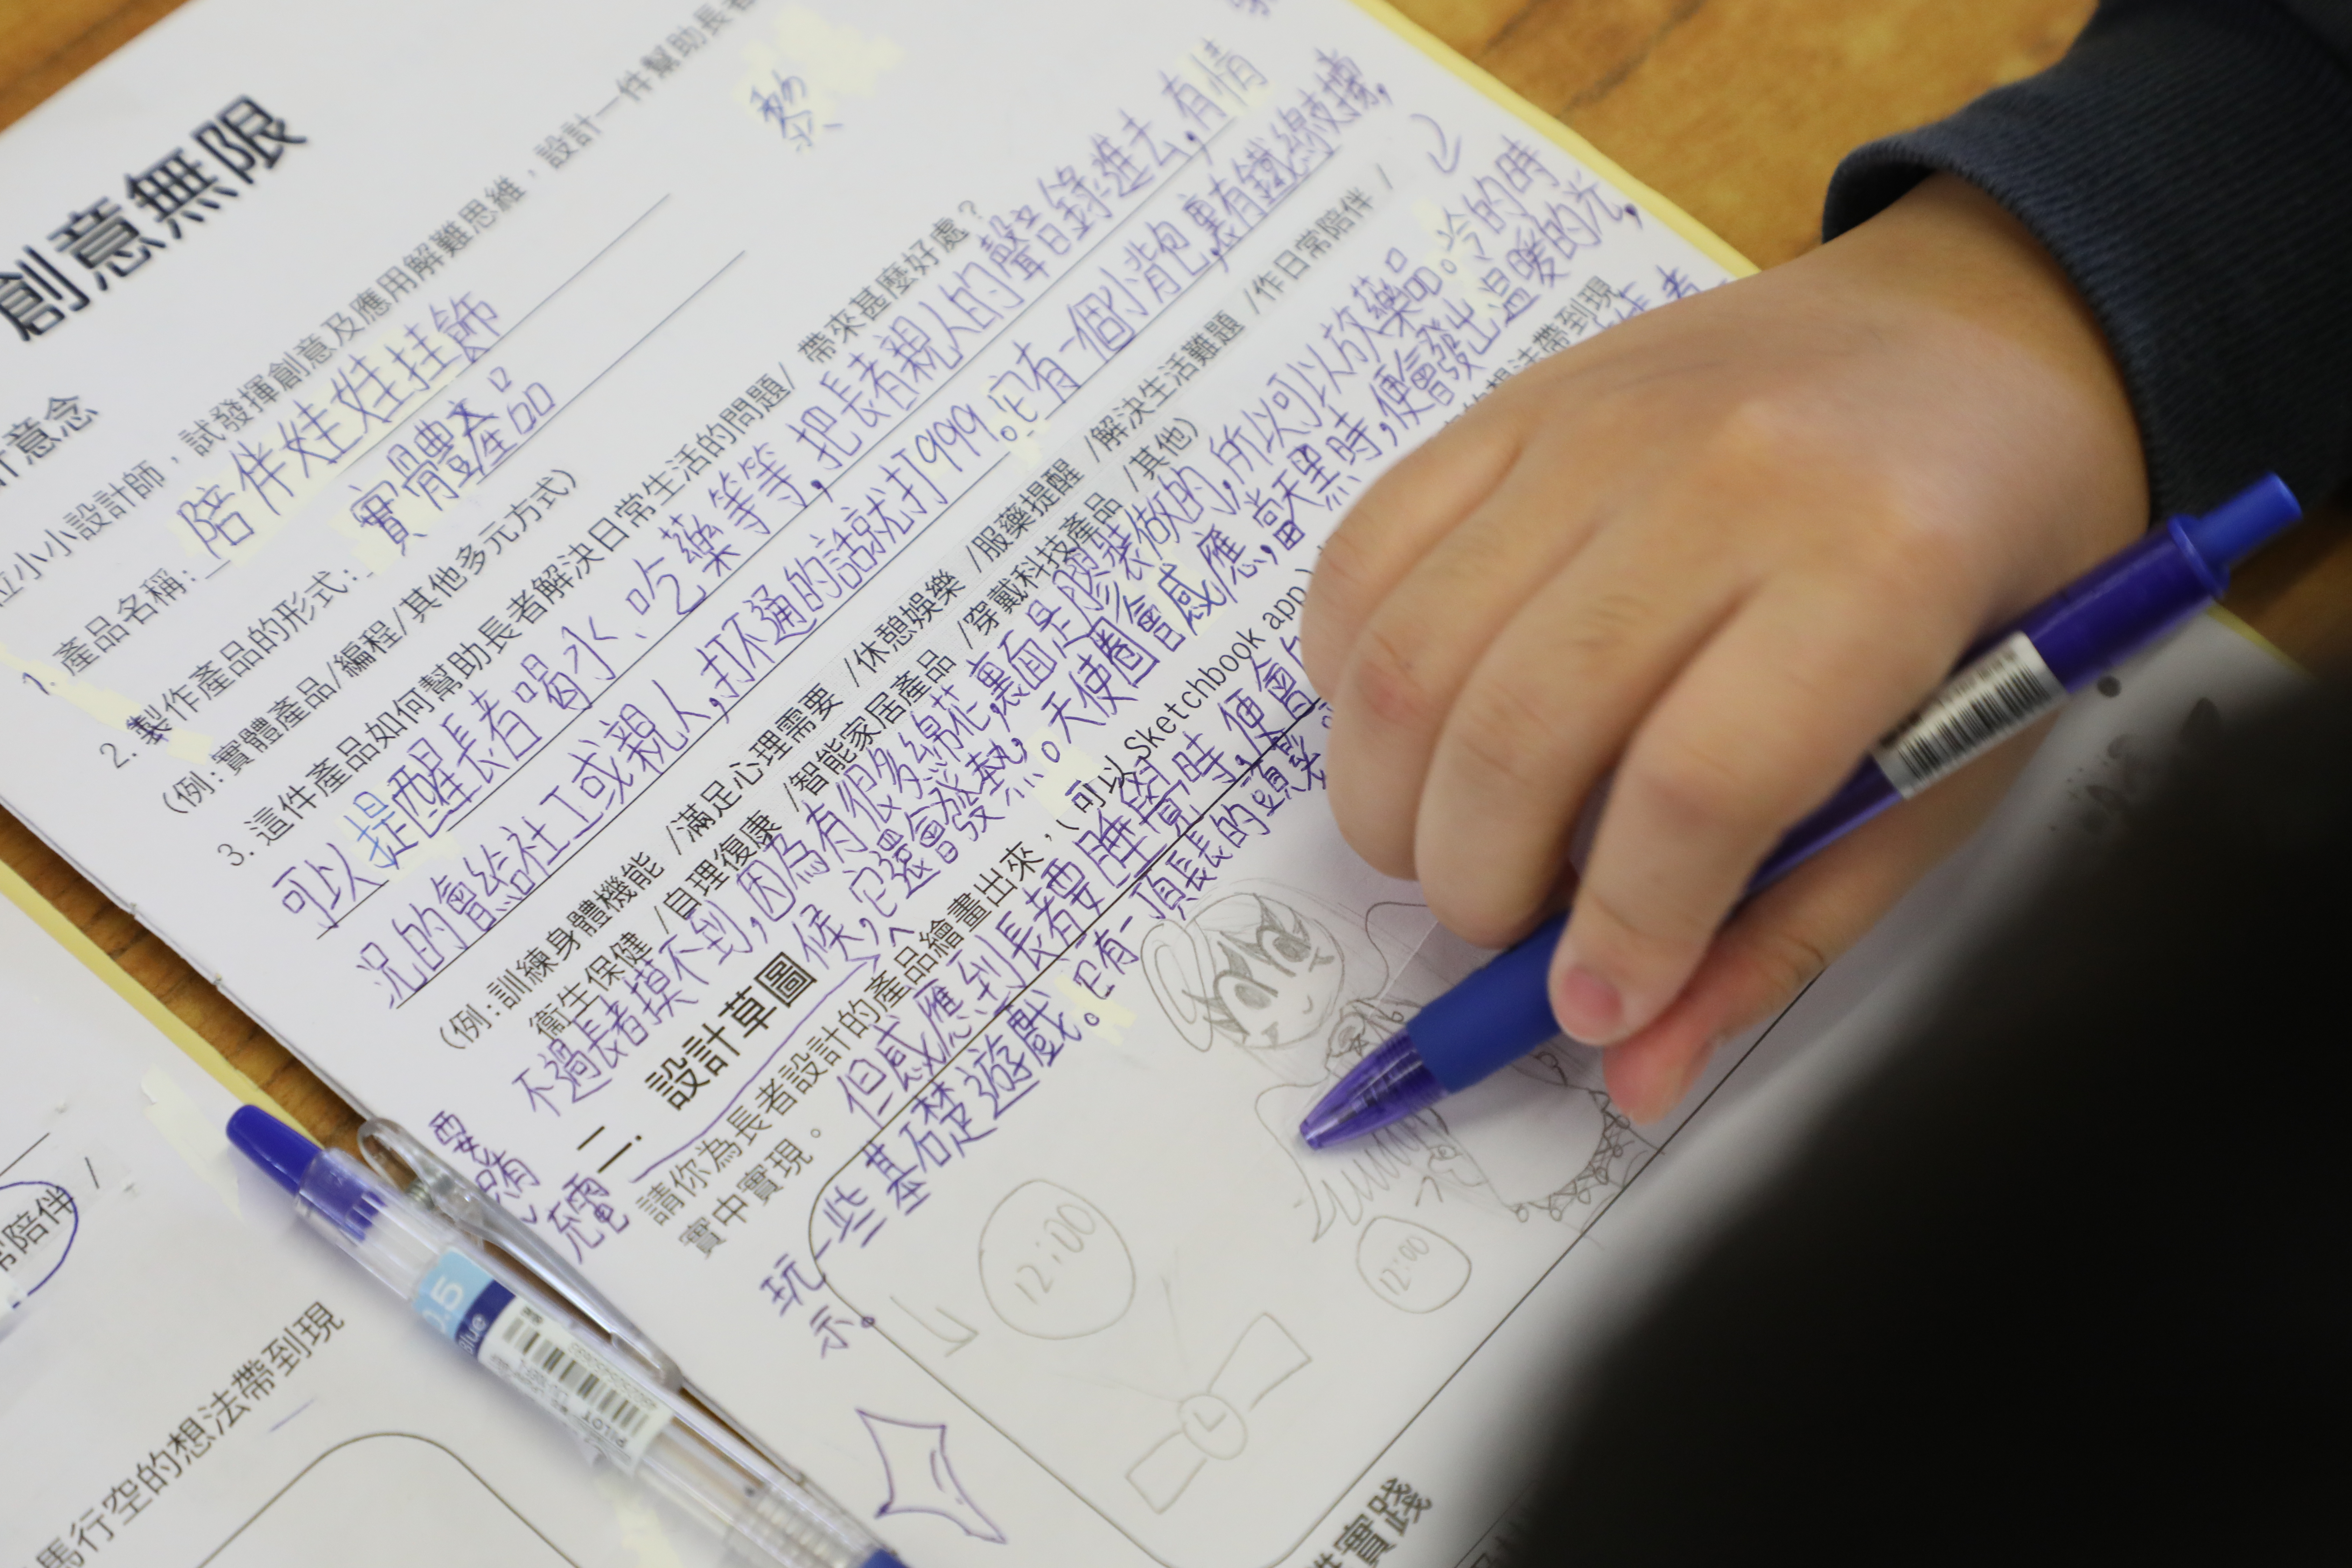 創意無限
計意念
位小小設計師，試發揮創意及應用解難思維，設計一件幫助長者
黎
1. 產品名稱： 陪伴娃娃挂飾
2. 製作產品的形式： 實體產品
(例：實體產品/編程/其他多元方式)
3. 這件產品如何幫助長者解決日常生活的問題/ 帶來甚麼好處？
可以提醒長者喝水、吃藥等等，把長者親人的聲音錄進去，有情
況的會給社工或親人，打不通的話就打999。它有一個小背包，裏有鐵線支撐，
(例：訓練身體機能 /滿足心理需要 /休憩娛樂 /服藥提醒 /解決生活難題 /作日常陪伴 /
衞生保健 /自理復康 /智能家居產品 /穿戴科技產品 /其他)
不過長者摸不到，因為有很多綿花，裏面是膠裝做的，所以可以放藥品。冷的時
候，它還會發熱。天使圈會感應，當天黑時，便會發出温暖的光，
二. 設計草圖
請你為長者設計的產品繪畫出來，(可以 Sketchbook app)
的想法帶到現
實中實現。
但感應到長者要睡覺時，便會
玩一些基礎遊戲。它有一頂長長的頭髮
示。
要
充電
12:00
12:00
常陪伴 /
馬行空的想法帶到現
實踐
0.5
Blue
PILOT